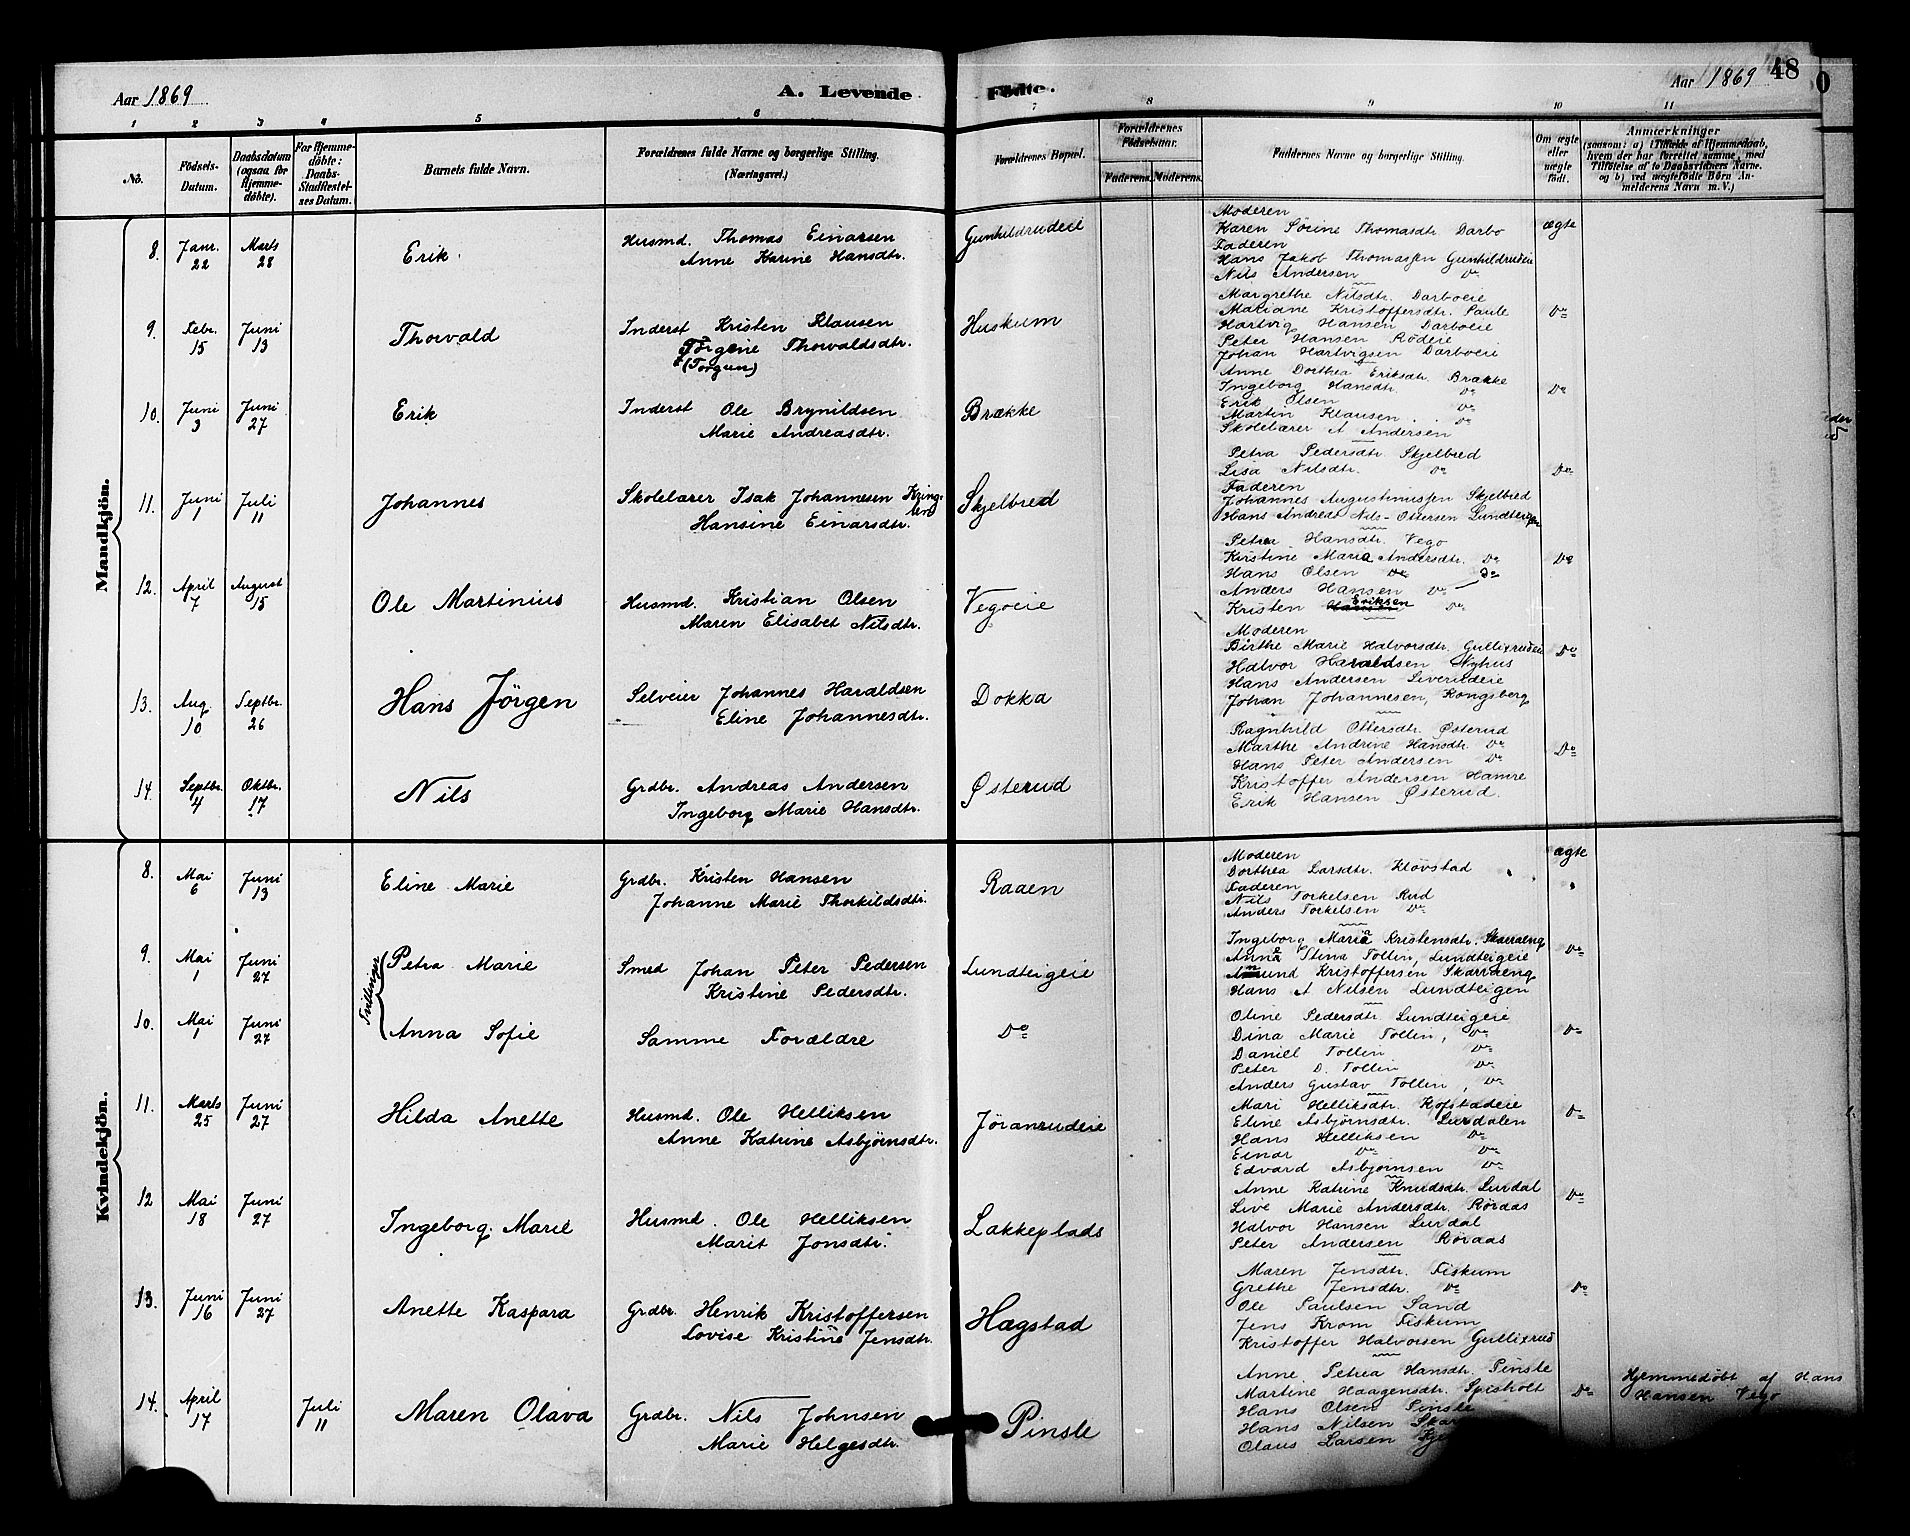 Aar 1869
A. Levende Fødte.
Aar 1869
48
1 2 3 4 5 6 7 8 9 10 11
No.
Födsels-Datum.
Daabsdatum (ogsaa for Hjemme-døbte).
For Hjemme-døbte: Daabs-Stadfæstel-ses Datum.
Barnets fulde Navn.
Forældrenes fulde Navne og borgerlige Stilling. (Næringsvei.)
Forældrenes Bopæl.
Forældrenes Födselsaar.
Faderens. Moderens.
Faddernes Navne og borgerlige Stilling.
Om ægte eller uægte født.
Anmærkninger
(saasom: a) i Tilfælde af Hjemmedaab, hvem der har forrettet samme, med Tilføielse af to Daabsvidners Navne. og b) ved uægtefødte Børn An-melderens Navn m. V.)
Mandkjön.
8. Janr. 22 Marts 28 Erik
Husmd. Thomas Einarsen
Anne Karine Hansdtr.
Gunhildrudeie
Moderen
Karen Sörine Thomasdtr. Darbo
Faderen
Hans Jakob Thomassen Gunhildrudeie
Nils Andersen Do
ægte
9. Febr. 15 Juni 13 Thorvald
Inderst Kristen Klausen
Törgine Thorvaldsdtr.
(Torgun)
Huskum
Margrethe Nilsdtr. Darboeie
Mariane Kristoffersdtr. Saule
Hartvig Hansen Darboeie
Peter Hansen Rödeie
Johan Hartvigsen Darboeie
Do
10. Juni 3 Juni 27 Erik
Inderst Ole Brynildsen
Marie Andreasdtr.
Brække
Anne Dorthea Eriksdtr. Brække
Ingeborg Hansdtr. Do
Erik Olsen Do
Martin Klausen Do
Skolelærer A Andersen
Do
11. Juni 1 Juli 11 Johannes
Skolelærer Isak Johannesen Kring-len
Hansine Einarsdtr.
Skjelbred
Petra Pedersdtr. Skjelbred
Lisa Nilsdtr. Do
Faderen
Johannes Augustinussen Skjelbred
Hans Andreas Nils-Ottersen Lundteigen
Do
12. April 7 August 15 Ole Martinius
Husmd. Kristian Olsen
Maren Elisabet Nilsdtr.
Vegoeie
Petrea Hansdtr. Vego
Kristine Maria Andersdtr. Do
Hans Olsen Do
Anders Hansen Do
Kristen Eriksen Do
Do
13. Aug. 10 Septbr. 26 Hans Jörgen
Selveier Johannes Haraldsen
Eline Johannesdtr.
Dokka
Moderen
Birthe Marie Halvorsdtr. Gullixrudeie
Halvor Haraldsen Nyhus
Hans Andersen Siverudeie
Johan Johannesen, Kongsberg
Do
14. Septbr. 4 Oktbr. 17 Nils
Grdbr. Andreas Andersen
Ingeborg Marie Hansdtr.
Østerud
Ragnhild Ottersdtr. Østerud
Marthe Andrine Hansdtr. Do
Hans Peter Andersen Do
Kristoffer Andersen Hamre
Erik Hansen Østerud.
Do
Kvindekjön.
8. Mai 6 Juni 13 Eline Marie
Grdbr. Kristen Hansen
Johanne Marie Thorkildsdtr.
Raaen
Moderen
Dorthea Larsdtr. Klövstad
Faderen
Nils Torkelsen Rud
Anders Torkelsen Do
ægte
Tvillinger
9. Mai 1 Juni 27 Petra Marie
Smed Johan Peter Pedersen
Kristine Pedersdtr.
Lundteigeie
Ingeborg Maria Kristensdtr. Skarraeng
Anne Stina Tollin, Lundteigeie
Amund Kristoffersen Skarraeng
Hans A Nilsen Lundteigen
Do
10. Mai 1 Juni 27 Anna Sofie
Samme Forældre
Do
Oline Pedersdtr. Lundteigeie
Dina Marie Tollin, Do
Daniel Tollin Do
Peter D. Tollin Do
Anders Gustav Tollin, Do
Do
11. Marts 25 Juni 27 Hilda Anette
Husmd. Ole Helliksen
Anne Katrine Asbjørnsdtr.
Jøranrudeie
Mari Helliksdtr. Kofstadeie
Eline Asbjørnsdtr. Lurdalen
Hans Helliksen Do
Einar Do Do
Edvard Asbjørnsen Do
Do
12 Mai 18 Juni 27 Ingeborg Marie
Husmd. Ole Helliksen
Marit Jonsdtr.
Lakkeplads
Anne Katrine Knudsdtr. Lurdal
Live Marie Andersdtr. Røraas
Halvor Hansen Lurdal
Peter Andersen Røraas
Do
13. Juni 16 Juni 27 Anette Kaspara
Grdbr. Henrik Kristoffersen
Lovise Kristine Jensdtr.
Hægstad
Maren Jensdtr. Fiskum
Grethe Jensdtr. Do
Ole Paulsen Sand
Jens Krom Fiskum
Kristoffer Halvorsen Gullixrud
Do
14. April 17 Juli 11 Maren Olava
Grdbr. Nils Johnsen
Marie Helgesdtr.
Pinsle
Anne Petrea Hansdtr. Pinsle
Martine Haagensdtr. Spisholt
Hans Olsen Pinsle
Hans Nilsen
Olaus Larsen
Do
Hjemmedøbt af Hans
Hansen Vego